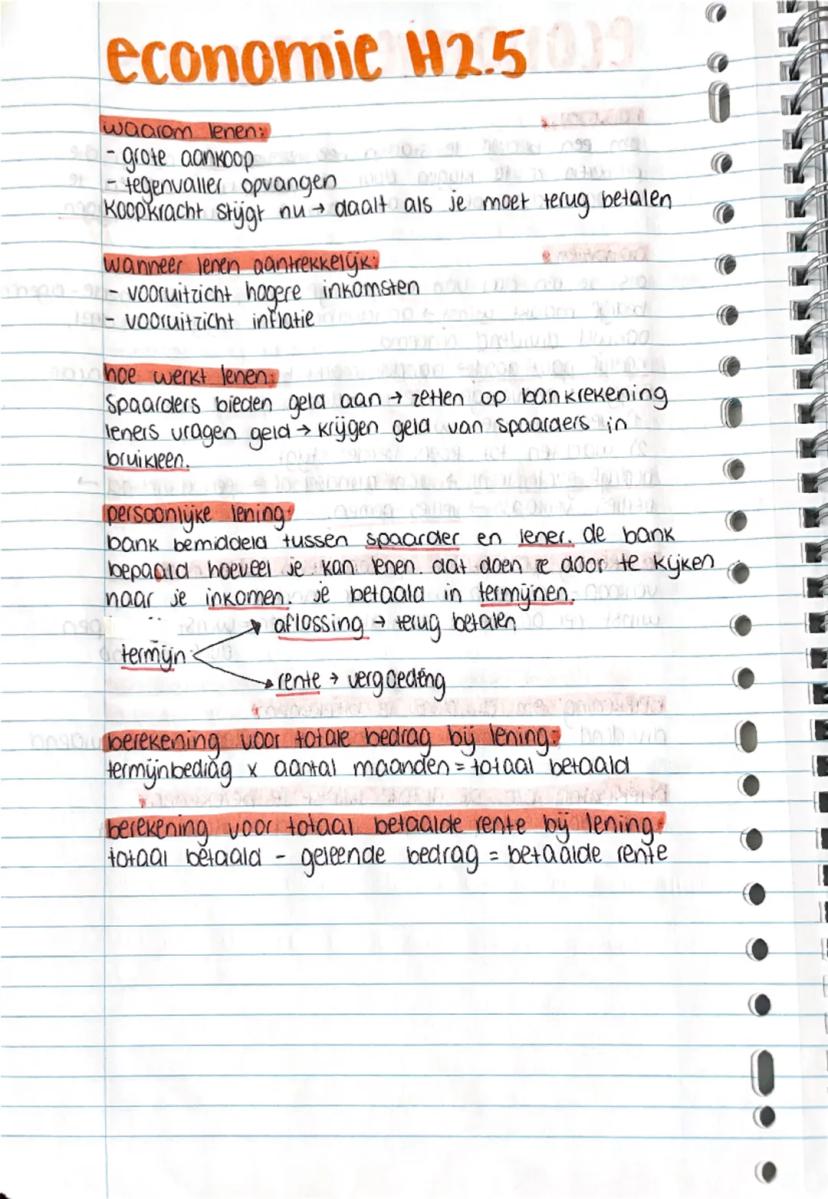 economie H2.5
waarom lenen:
- grote aankoop
- tegenvaller opvangen
Koopkracht stijgt nu → daalt als je moet terug betalen
wanneer lenen aantrekkelijk:
- vooruitzicht hogere inkomsten
- vooruitzicht inflatie
hoe werkt lenen:
Spaarders bieden geld aan → zetten op bankrekening
leners vragen geld → krijgen geld van spaarders in
bruikleen.
persoonlijke lening:
bank bemiddeld tussen spaarder en lener. de bank
bepaald hoeveel je kan lenen. dat doen ze door te kijken
naar je inkomen. je betaald in termijnen.
aflossing → terug betalen
termijn
rente → vergoeding
berekening voor totale bedrag bij lening:
termijnbedrag x aantal maanden = totaal betaald
berekening voor totaal betaalde rente bij lening:
totaal betaald - geleende bedrag = betaalde rente